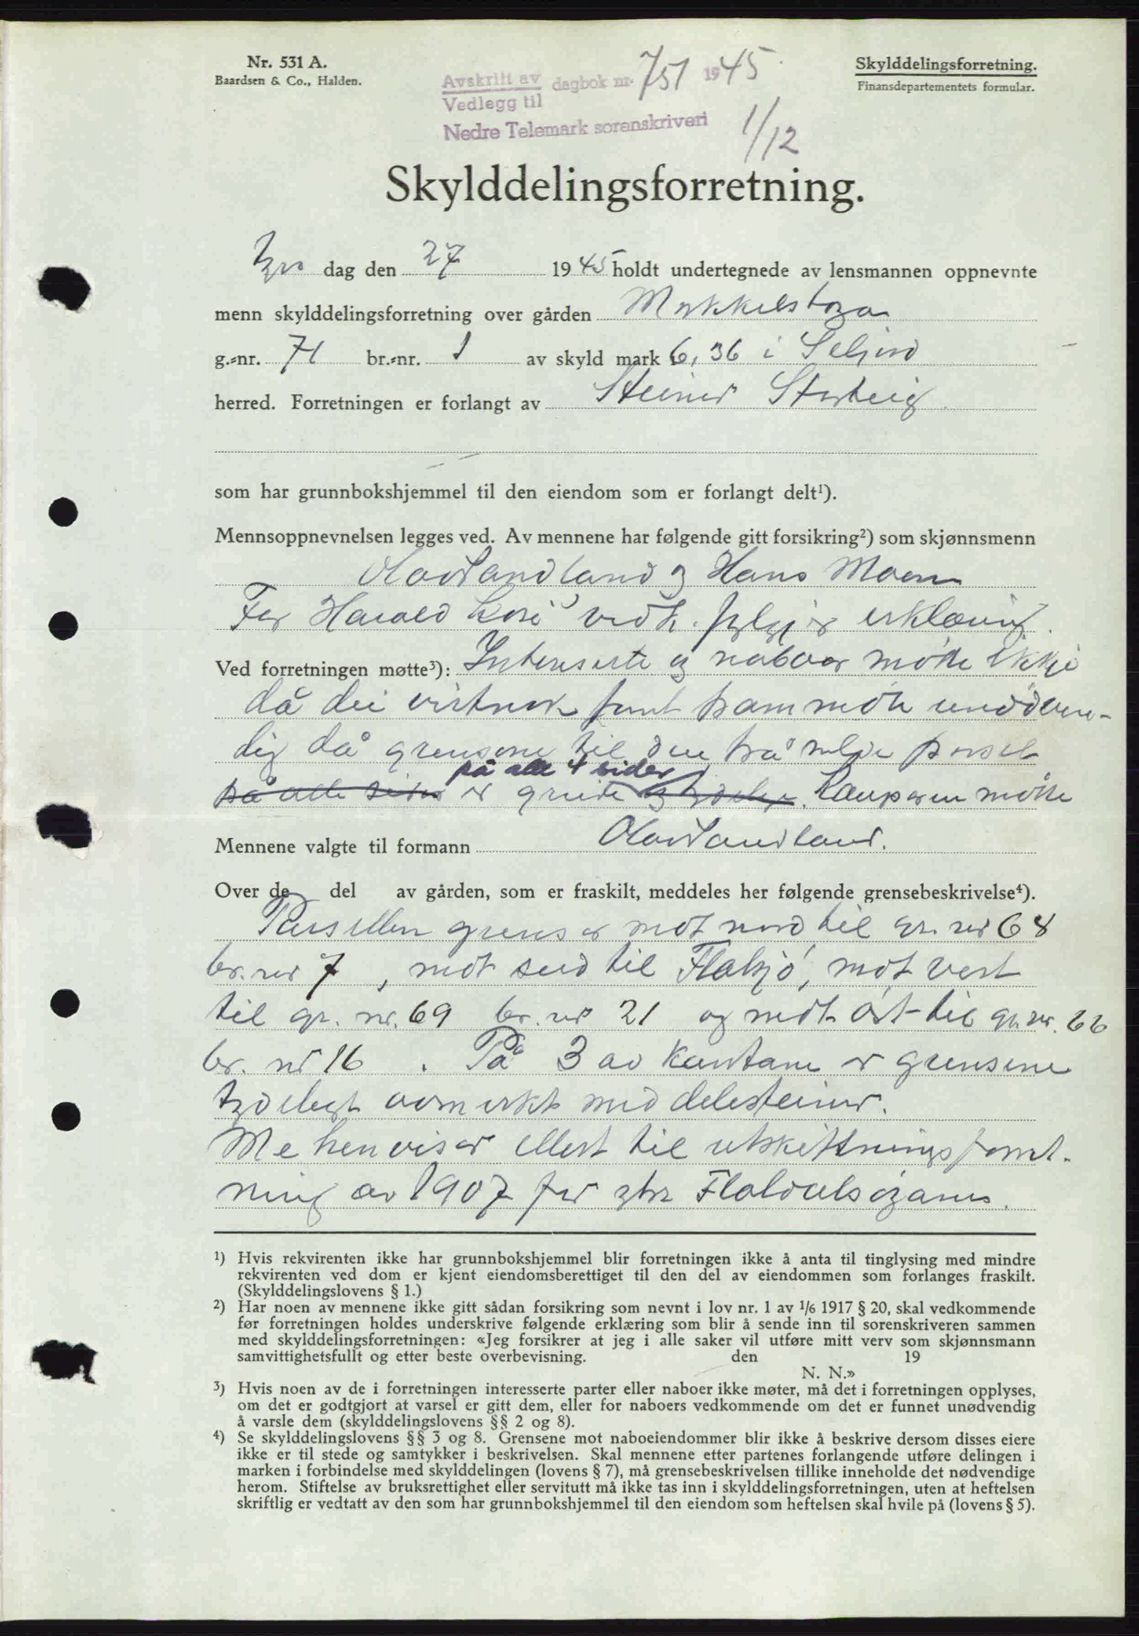 Nr. 531 A.
Baardsen & Co., Halden.
Avskrift av
Vedlegg til
dagbok nr. 751 1945
Nedre Telemark sorenskriveri
1/12
Skylddelingsforretning.
Finansdepartementets formular.
Skylddelingsforretning.
dag den 27 1945 holdt undertegnede av lensmannen oppnevnte
menn skylddelingsforretning over gården
g.-nr. 71 br.-nr. 1 av skyld mark 6,36 i Seljord
herred. Forretningen er forlangt av Steinar
som har grunnbokshjemmel til den eiendom som er forlangt delt¹).
Mennsoppnevnelsen legges ved. Av mennene har følgende gitt forsikring²) som skjønnsmenn
Olav Sandland og Hans Moen
For Harald vedk. fylgjer erklæring.
Ved forretningen møtte³): Interserte og naboar møtte ikkje
då dei frammøte unødven-
dig då grensene til den frå
på alle 4 sider
på alle sider er greide Kauparen møtte
Mennene valgte til formann Olav Sandland.
Over de del av gården, som er fraskilt, meddeles her følgende grensebeskrivelse⁴).
Parsellen grensar mot nord til gr. nr 68
br. nr 7, mot sud til Flatsjø, mot vest
til gr. nr. 69 br. nr 21 og mot øst til gr. nr. 66
br. nr 16. På 3 av kantane er grensene
tydelegt oppmerkt med delesteinar.
Me henviser ellers til utskiftningsforret-
ning av 1907 for
¹) Hvis rekvirenten ikke har grunnbokshjemmel blir forretningen ikke å anta til tinglysing med mindre
rekvirenten ved dom er kjent eiendomsberettiget til den del av eiendommen som forlanges fraskilt.
(Skylddelingslovens § 1.)
²) Har noen av mennene ikke gitt sådan forsikring som nevnt i lov nr. 1 av 1/6 1917 § 20, skal vedkommende
før forretningen holdes underskrive følgende erklæring som blir å sende inn til sorenskriveren sammen
med skylddelingsforretningen: «Jeg forsikrer at jeg i alle saker vil utføre mitt verv som skjønnsmann
samvittighetsfullt og etter beste overbevisning. den 19
N. N.»
³) Hvis noen av de i forretningen interesserte parter eller naboer ikke møter, må det i forretningen opplyses,
om det er godtgjort at varsel er gitt dem, eller for naboers vedkommende om det er funnet unødvendig
å varsle dem (skylddelingslovens §§ 2 og 8).
⁴) Se skylddelingslovens §§ 3 og 8. Grensene mot naboeiendommer blir ikke å beskrive dersom disses eiere
ikke er til stede og samtykker i beskrivelsen. Skal mennene etter partenes forlangende utføre delingen i
marken i forbindelse med skylddelingen (lovens § 7), må grensebeskrivelsen tillike inneholde det nødvendige
herom. Stiftelse av bruksrettighet eller servitutt må ikke tas inn i skylddelingsforretningen, uten at heftelsen
skriftlig er vedtatt av den som har grunnbokshjemmel til den eiendom som heftelsen skal hvile på (lovens § 5).